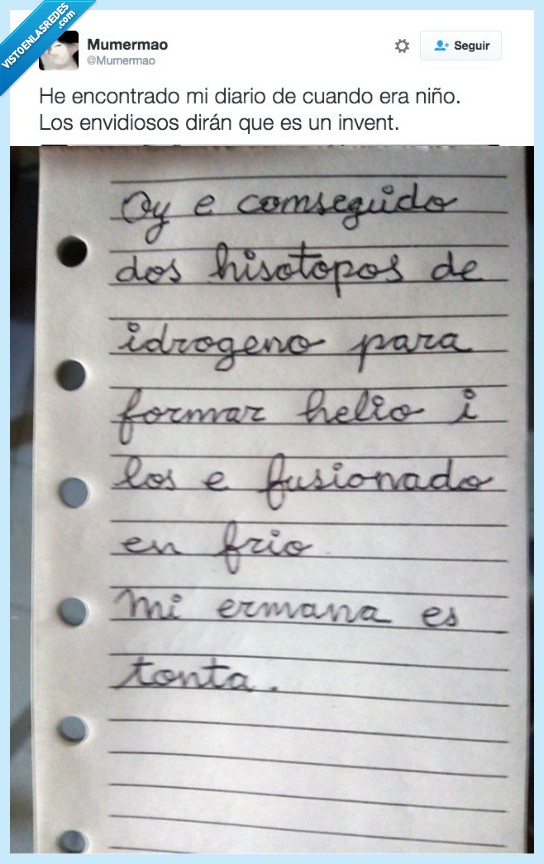 VISTOENLASREDES
.com
Mumermao
@Mumermao
Seguir
He encontrado mi diario de cuando era niño.
Los envidiosos dirán que es un invent.
Oy e comseguido
dos hisotopos de
idrogeno para
formar helio i
los e fusionado
en frio.
Mi ermana es
tonta.